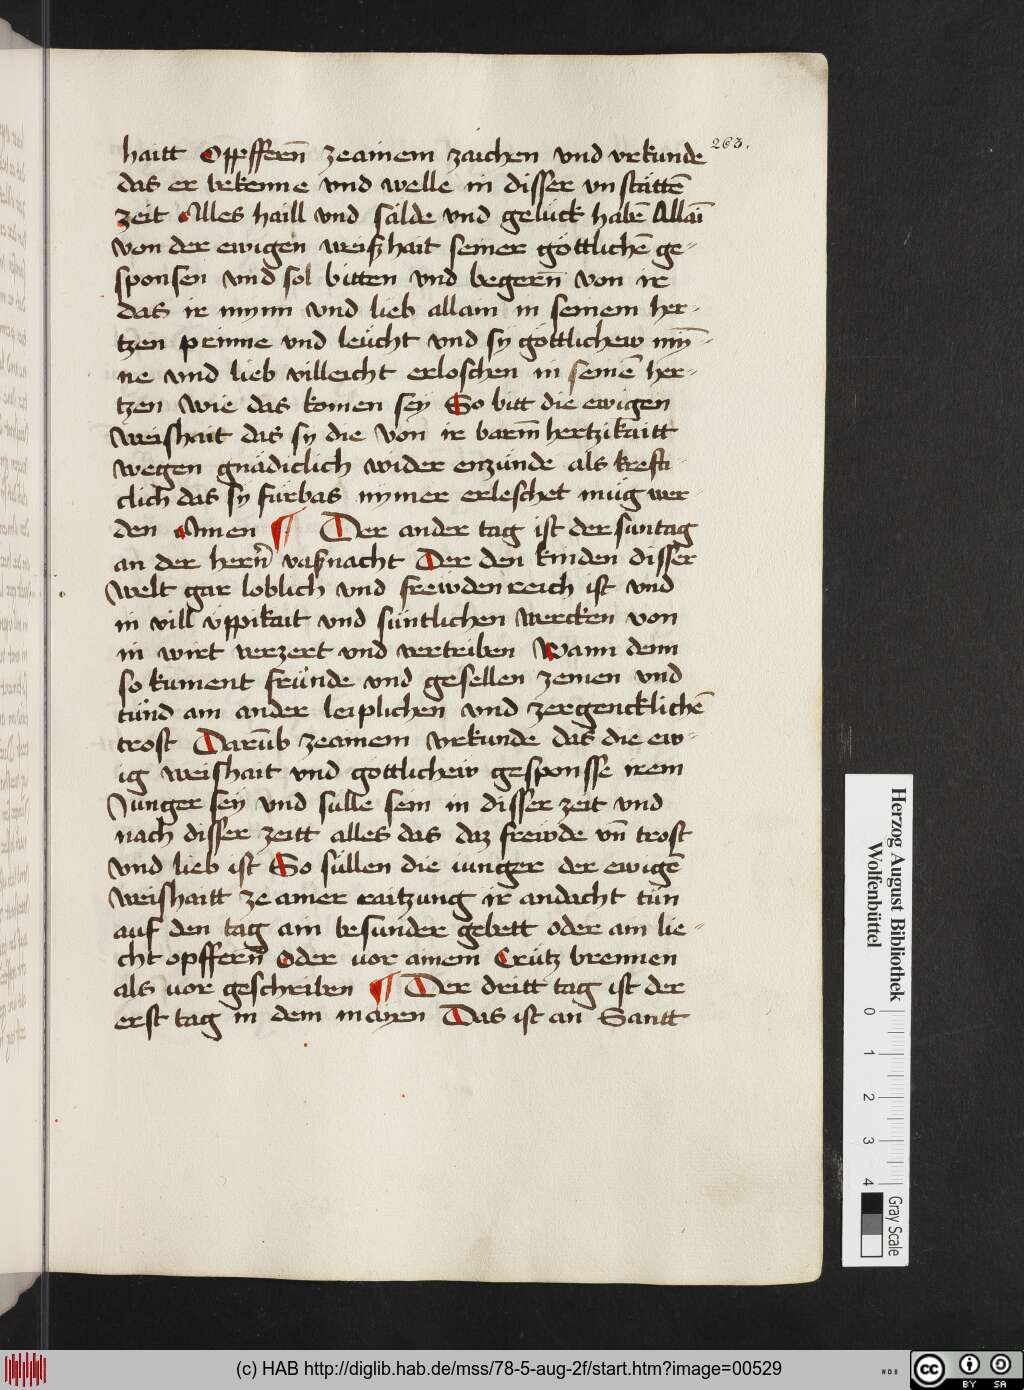 263.
haitt Opfferñ zeainem zaichen vnd vrkunde
das er bekenne vnd welle in disser vnstättē
zeit Alles haill vnd sälde vnd gelück habē Allaī
von der ewigen weißhait seiner göttlichē ge-
sponsen vnd sol bitten vnd begerñ von ir
das ir mynn vnd lieb allain in seinem her-
tzen prinne vnd leücht vnd sy göttlichew mȳ-
ne vnd lieb villeicht erloschen in seinē her-
tzen wie das komen seÿ So bitt die ewigen
weishait das sy die von ir barm̄hertzikaitt
wegen gnädiclich wider enzünde als krefti-
clich das sy fürbas nymer erleschet müg wer-
den Amen ¶ Der ander tag ist der suntag
an der herñ vaßnacht Der den kinden disser
welt gar loblich vnd frewdenreich ist vnd
in vill üppikait vnd süntlichen wercken von
in wirt verzert vnd vertriben Wann denn
so kument fründe vnd gesellen zemen vnd
tünd ain ander leiplichen vnd zergencklichē
trost Darūb zeainem vrkunde das die ew-
ig weishait vnd gottlichew gesponsse irem
Junger seÿ vnd sulle sein in disser zeit vnd
nach disser zeitt alles das daz frewde vn̄ trost
vnd lieb ist So süllen die iunger der ewigē
weishaitt ze ainer raitzung ir andacht tün
auf den tag ain besunder gebett oder ain lie-
cht opfferñ Oder vor ainem Crütz brennen
als vor geschriben ¶ Der dritt tag ist der
erst tag in dem mayen Das ist an Santt
Herzog August Bibliothek
Wolfenbüttel
0 1 2 3 4
Gray Scale
(c) HAB http://diglib.hab.de/mss/78-5-aug-2f/start.htm?image=00529
cc BY SA